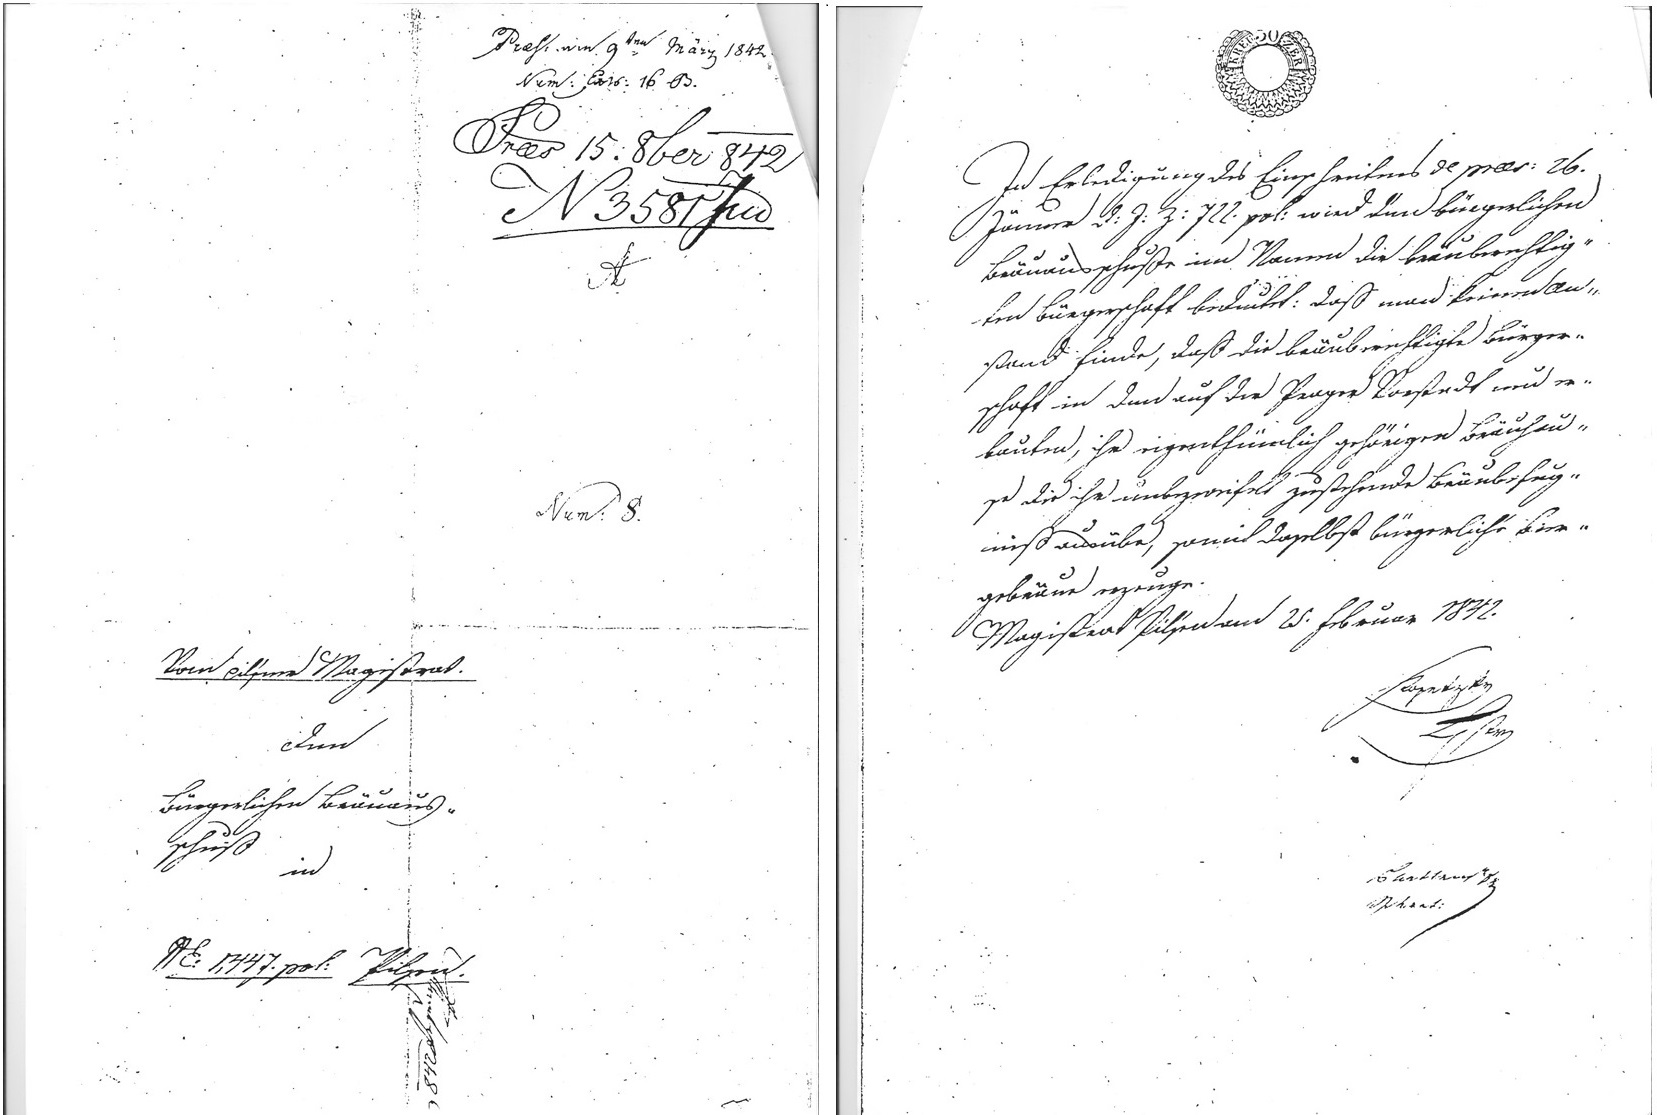 Præs. am 9ten März 1842
Num: Exh: 16 B.
Præs 15. 8ber 842
N 3585
Num: 8.
Vom Pilsner Magistrat.
dem
bürgerlichen Bräuaus-
schuß
in
NE: 1447. pol: Pilsen.
30 KREUZER
In Erledigung des Einschreitens de præs: 26.
Jänner d: J: Z: 722. pol: wird dem bürgerlichen
Bräuausschuße im Namen der bräuberechtig-
ten Bürgerschaft bedeutet: daß man keinen An-
stand finde, daß die bräuberechtigte Bürger-
schaft in dem auf der Prager Vorstadt neu er-
bauten, ihr eigenthümlich gehörigen Bräuhau-
se die ihr unbezweifelt zustehende Bräubefug-
niß ausübe, somit daselbst bürgerliche Bier-
gebräue erzeuge.
Magistrat Pilsen am 25. Februar 1842.
Kopetzky